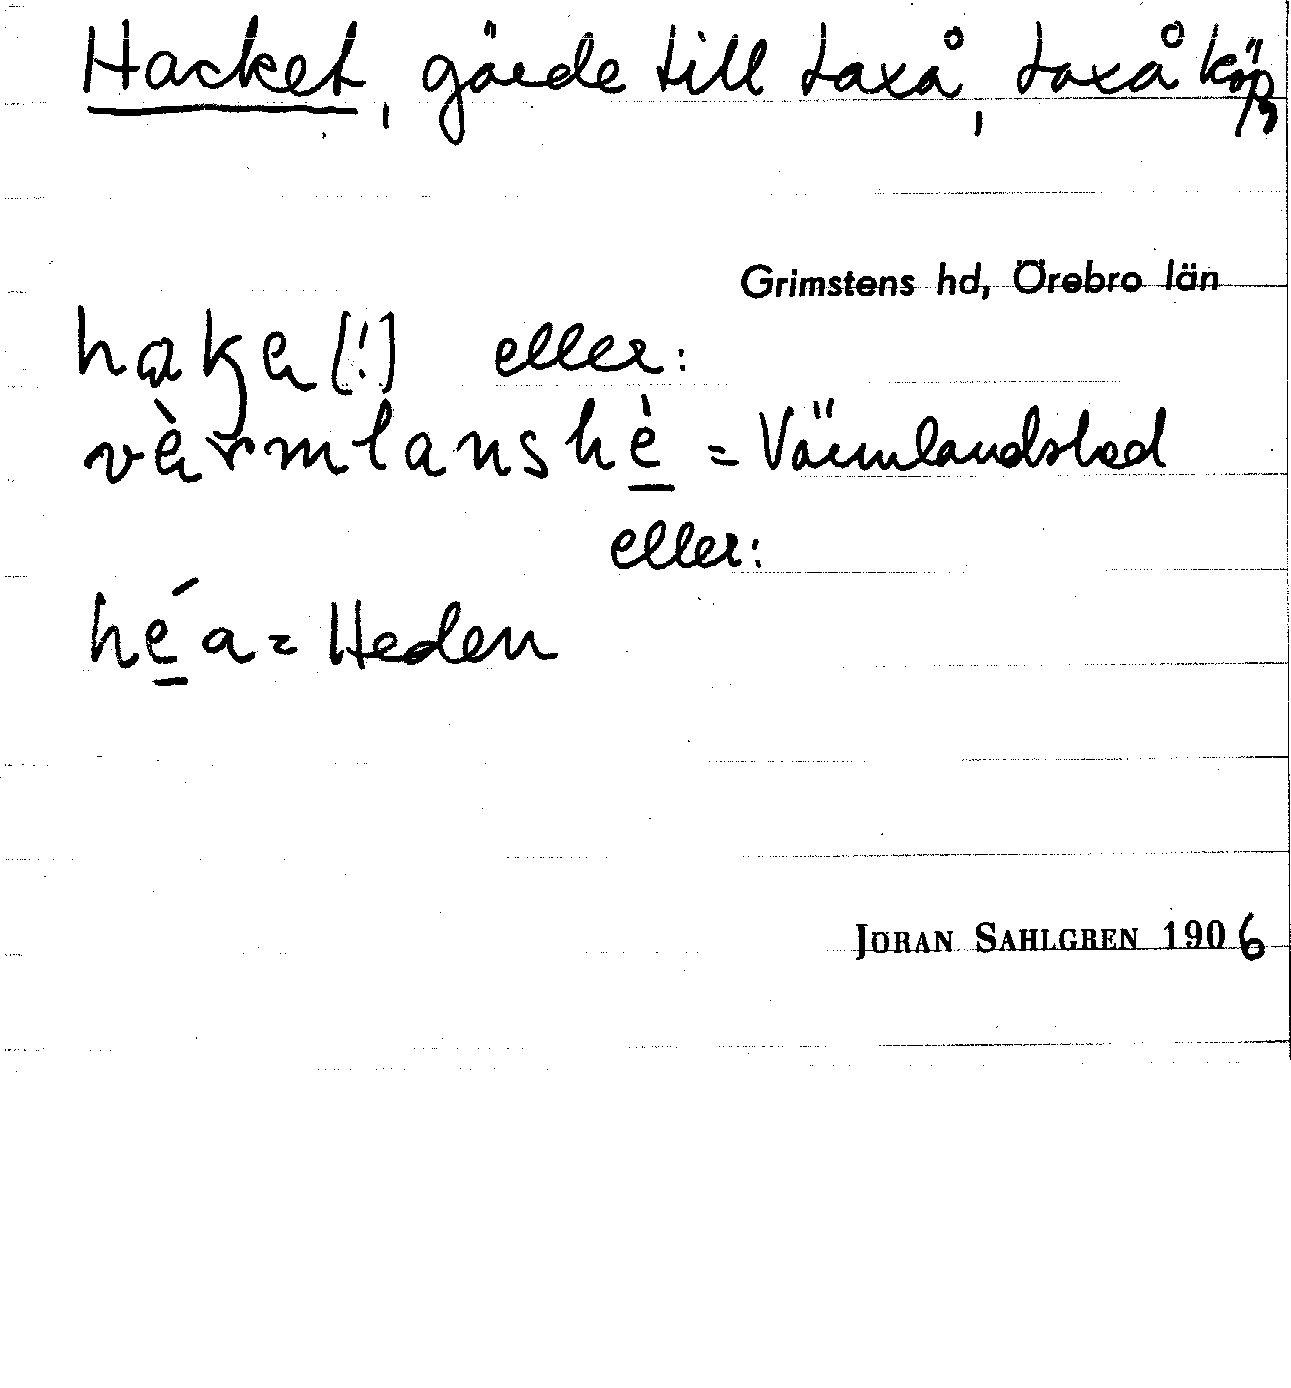 Hacket, gärde till Laxå, Laxå köp
Grimstens hd, Örebro län
haka [!] eller:
vèrmlanshè = Värmlandshed
eller:
héa = Heden
JÖRAN SAHLGREN 1906